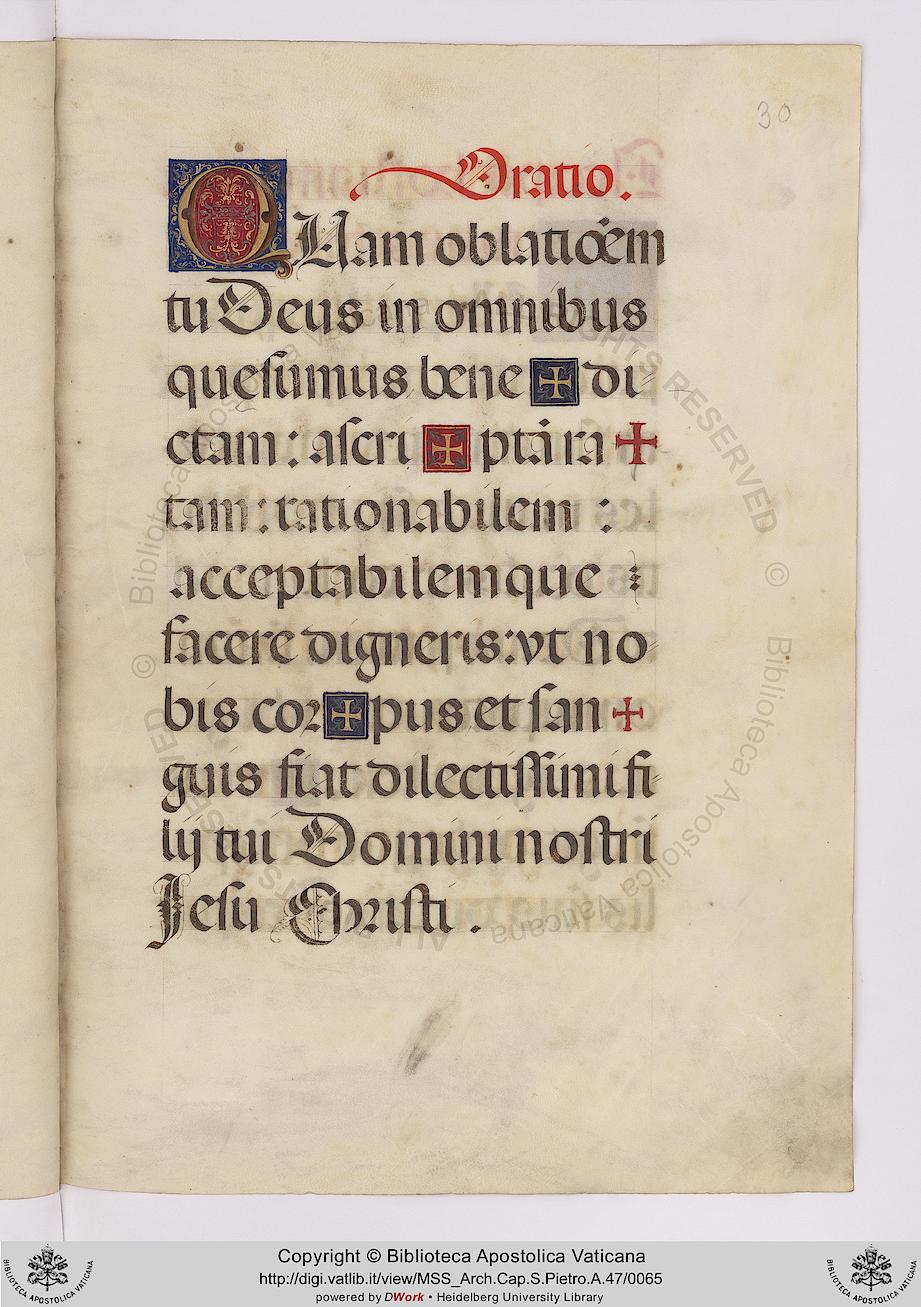 30
Oratio.
QUam oblatiōēm
tu Deus in omnibus
queſumus bene ✠ di
ctam : aſcri ✠ ptā ra ✠
tam : rationabilem :
acceptabilemque :
facere digneris: vt no
bis cor ✠ pus et ſan ✠
guis fiat dilectiſſimi fi
lij tui Domini noſtri
Jeſu Chriſti .
Copyright © Biblioteca Apostolica Vaticana
http://digi.vatlib.it/view/MSS_Arch.Cap.S.Pietro.A.47/0065
powered by DWork • Heidelberg University Library
BIBLIOTECA APOSTOLICA VATICANA
BIBLIOTECA APOSTOLICA VATICANA